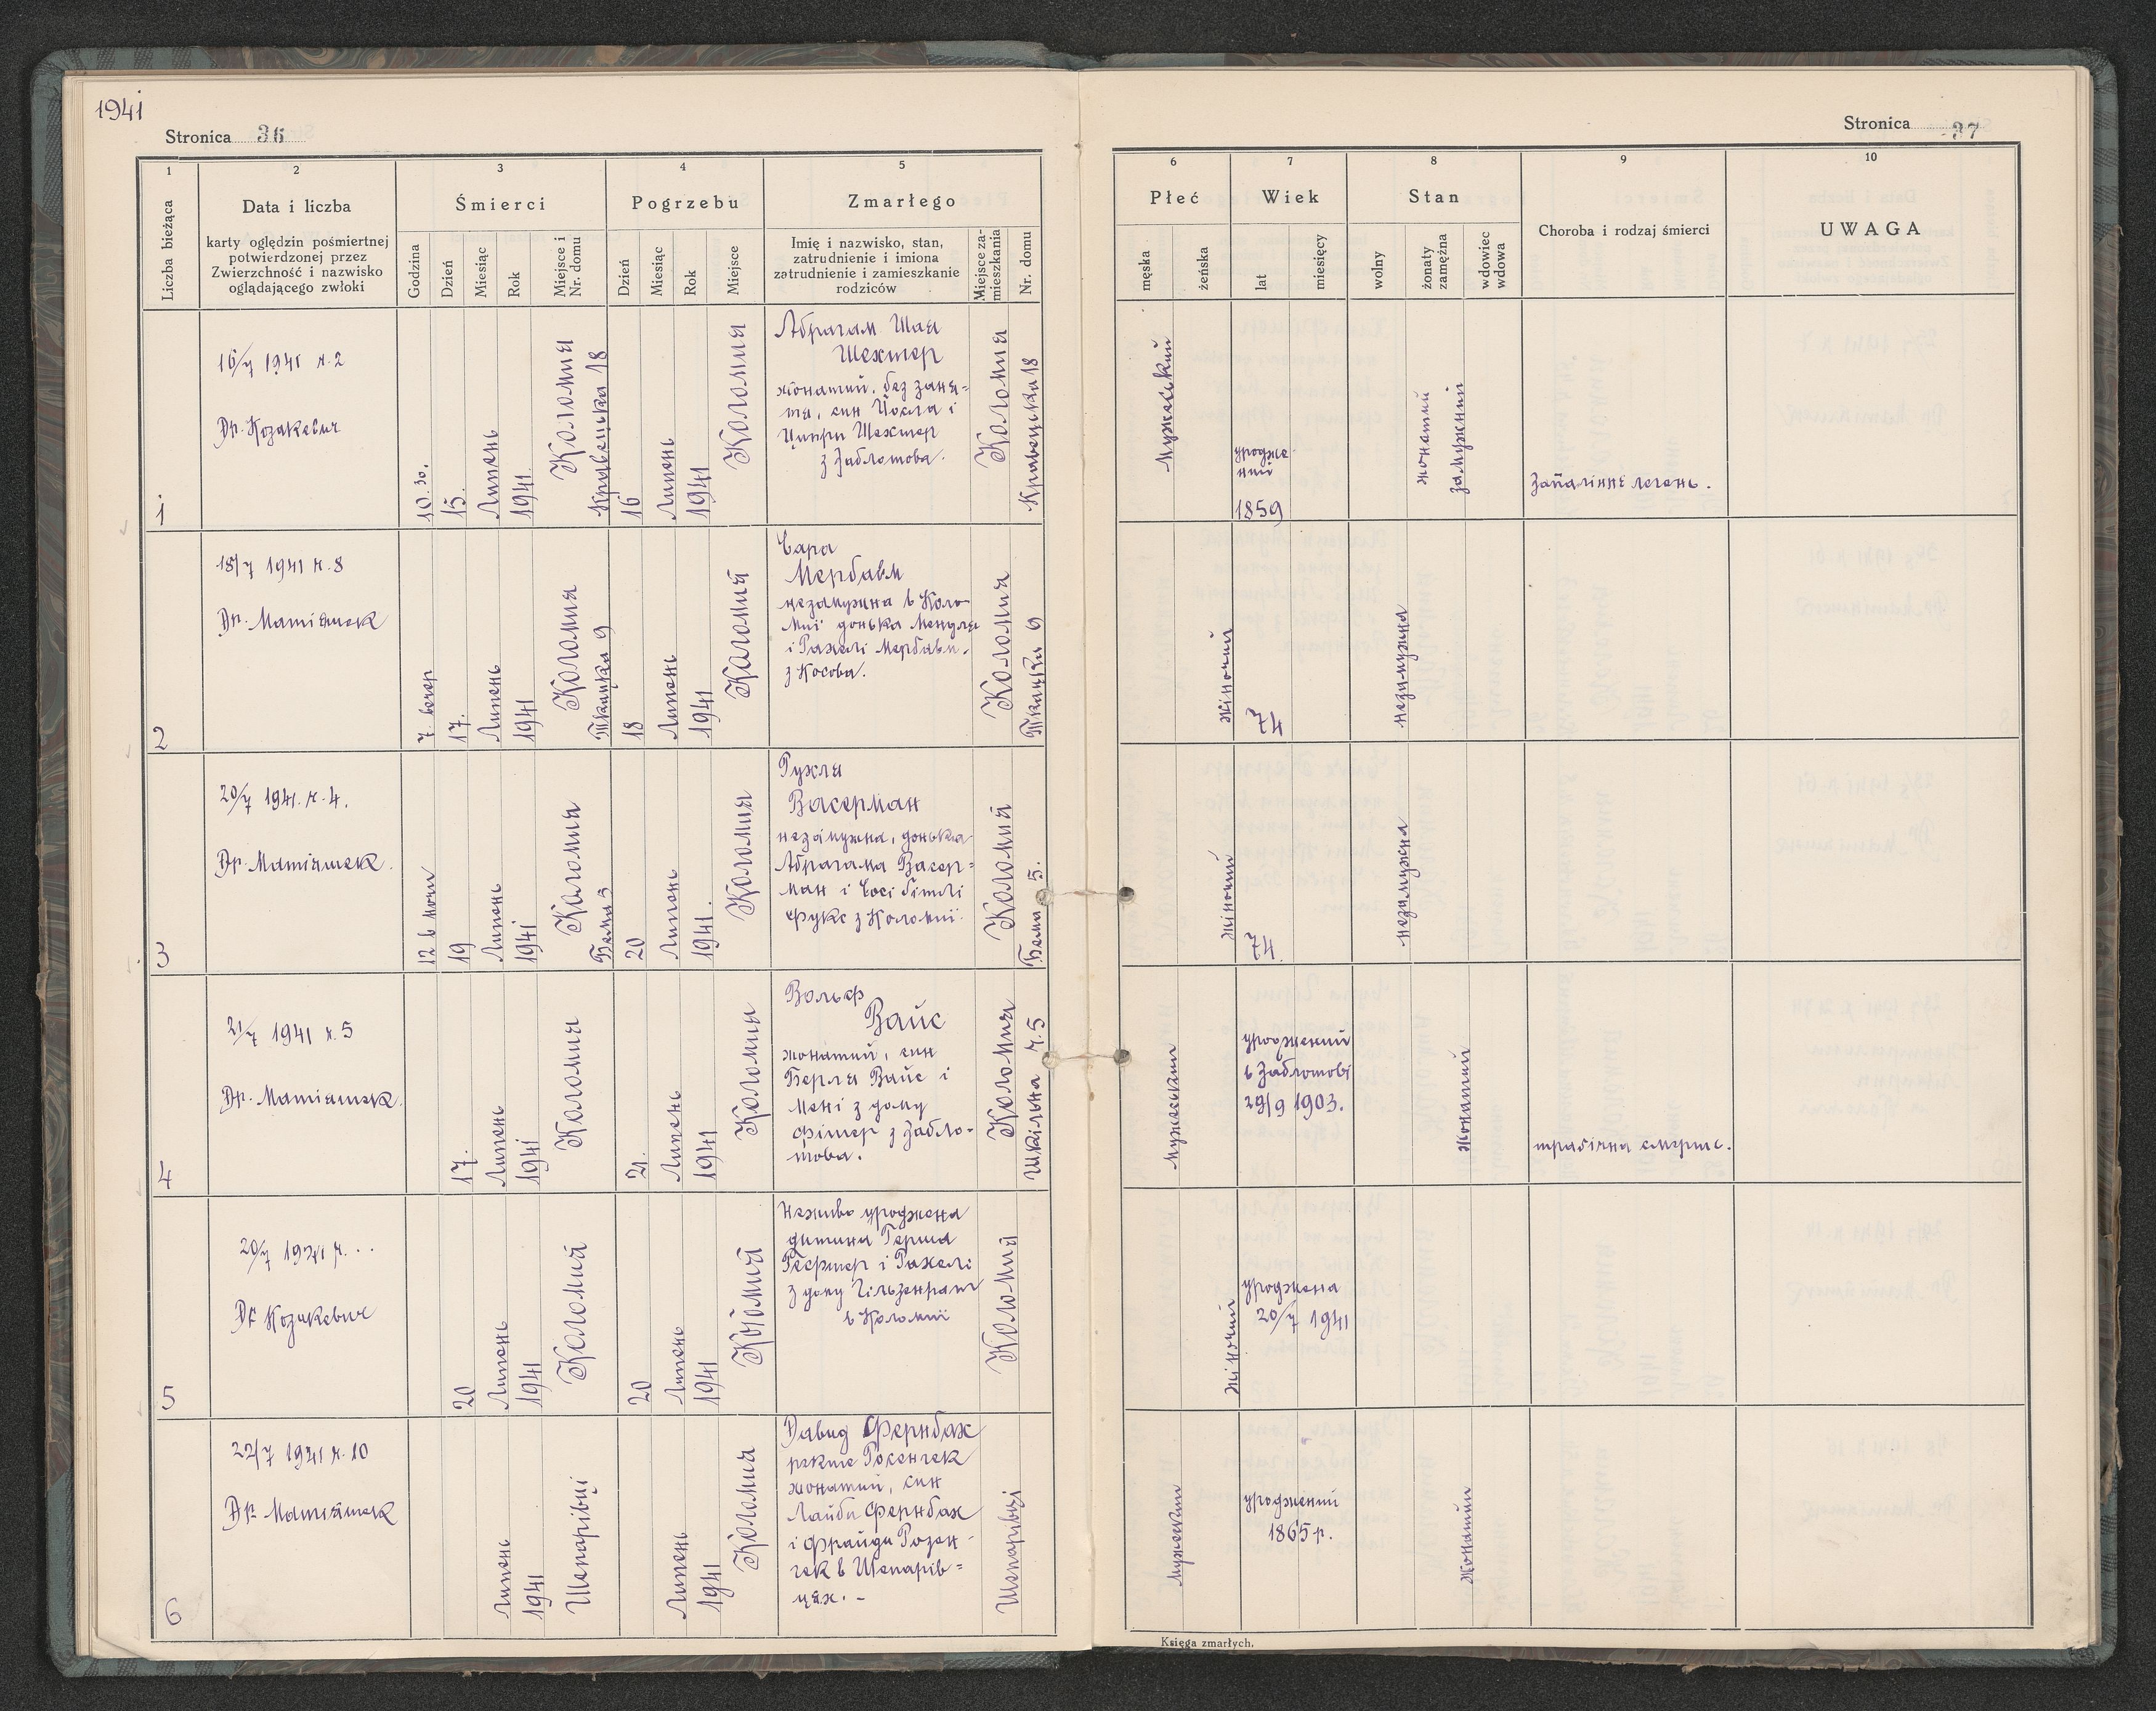 1941
Stronica 36
1
2
3
4
5
Liczba bieżąca
Data i liczba
karty oględzin pośmiertnej
potwierdzonej przez
Zwierzchność i nazwisko
oglądającego zwłoki
Śmierci
Godzina
Dzień
Miesiąc
Rok
Miejsce i
Nr. domu
Pogrzebu
Dzień
Miesiąc
Rok
Miejsce
Zmarłego
Imię i nazwisko, stan,
zatrudnienie i imiona
zatrudnienie i zamieszkanie
rodziców
Miejsce za-
mieszkania
Nr. domu
1
16/7 1941 ч. 2
Др. Козакевич
10.30.
15.
Липень
1941.
Коломия
Кравецка 18
16
Липень
1941
Коломия
Абрагам Шая
Шехтер
жонатий, без заня=
тя, син Йосла і
Ципри Шехтер
з Заблотова.
Коломия
Кравецка 18
2
18/7 1941 ч. 8
Др. Матіяшек
7. вечер
17.
Липень
1941
Коломия
Ткацка 9
18
Липень
1941
Коломия
Сара
Мербавм
незамужна в Коло
миї донька Мендля
і Рахелі Мербавм.
з Косова.
Коломия
Ткацка 9
3
20/7 1941. ч. 4.
Др. Матіяшек.
12 в ночи
19
Липень
1941
Коломия
Бема 5
20
Липень
1941.
Коломия
Рухля
Васерман
незамужна, донька
Абрагама Васер=
ман і Сосі Бітлі
Фукс з Коломиї.
Коломия
Бема 5.
4
21/7 1941 ч. 5
Др. Матіяшек.
17.
Липень
1941
Коломия
21.
Липень
1941
Коломия
Вольф
Вайс
жонатий, син
Берля Вайс і
Мені з дому
Фітер з Забло-
това.
Коломия
Шкільна ч. 5
5
20/7 1941 ч. . .
Др Козакевич
20
Липень
1941
Коломия
20
Липень
1941
Коломия
Неживо уроджена
дитина Герша
Геертер і Рахелі
з дому Гільзенрат
в Коломиї
Коломия
6
22/7 1941 ч. 10
Др. Матіяшек
Липень
1941
Шепарівці
Липень
1941
Коломия
Давид Фернбах
ректе Росенчек
жонатий, син
Лайби Фернбах
і Фрайди Розен-
чек в Шепарів=
цях. -
Шепарівці
Stronica 37
6
7
8
9
10
Płeć
męska
żeńska
Wiek
lat
miesięcy
Stan
wolny
żonaty
zamężna
wdowiec
wdowa
Choroba i rodzaj śmierci
UWAGA
Мужеський
уродже-
ний
1859
жонатий
замужний
Запаліннє легень.
Жіночий
74
незамужна
Жіночий
74.
незамужна
Мужеский
уроджений
в Заблотові
29/9 1903.
Жонатий
трагічна смерть.
Жіночий
уроджена
20/7 1941
Мужеский
уроджений
1865 р.
Жонатий
Księga zmarłych.